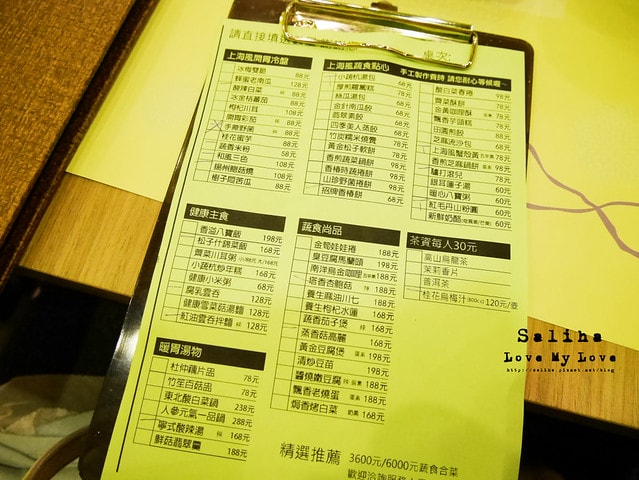 請直接填
桌次:
上海風開胃冷盤
冰梅雙脆 88元
蜂蜜老南瓜 128元
酸辣白菜 辣 88元
冰金桔蕃茄 88元
枸杞川耳 108元
開胃彩茄 辣 88元
手撕野菌 辣 88元
桂花蜜芋 88元
蔬香米粉 58元
和風三色 108元
揚州鮑菇燒 108元
樹子悶苦瓜 88元
上海風蔬食點心 手工製作費時 請您耐心等候喔~
小蔬杭湯包 68元
厚煎蘿蔔糕 78元
絲瓜湯包 78元
金針南瓜餃 68元
翡翠素餃 68元
四季美人蒸餃 68元
竹炭糯米燒賣 78元
黃金松子軟餅 78元
香煎蔬菜鍋餅 98元
香椿時蔬捲餅 98元
山珍野菌捲餅 98元
招牌香椿餅 68元
酸白菜春捲 98元
齊菜酥餅 78元
金黃咖哩酥 78元
飄香芋頭糕 78元
田園煎餃 88元
芝麻流沙包 68元
上海風蟹殼黃 78元
香煎芝麻鍋餅 98元
驢打滾兒 78元
銀耳蓮子湯 60元
暖心八寶粥 60元
紅毛丹山粉圓 60元
新鮮奶酪 60元
健康主食
香溢八寶飯 198元
松子什錦菜飯 168元
薺菜川耳粥 小/88元 大/168元
小蔬杭炒年糕 168元
健康小米粥 68元
腐乳雲吞 128元
健康雪菜菇湯麵 128元
紅油雲吞拌麵 辣 168元
蔬食尚品
金筍娃娃捲 198元
臭豆腐馬蘭頭 198元
南洋烏金咖哩 188元
塔香杏鮑菇 辣 188元
養生麻油川七 188元
養生枸杞水蓮 168元
蔬香茄子煲 辣 168元
蒸香高麗 168元
黃金豆腐煲 蛋素 188元
清炒豆苗 188元
醬燒嫩豆腐 辣 蛋素 188元
飄香老燒蛋 蛋素 188元
焗香烤白菜 奶素 168元
茶資每人30元
高山烏龍茶
茉莉香片
普洱茶
桂花烏梅汁(800cc) 120元/壺
暖胃湯物
杜仲藕片品 78元
竹笙百菇品 78元
東北酸白菜鍋 238元
人參元氣一品鍋 288元
寧式酸辣湯 辣 168元
鮮菇翡翠羹 188元
精選推薦 3600元/6000元蔬食合菜
歡迎洽詢服務人
Saliha
Love My Love
http://saliha.pixnet.net/blog